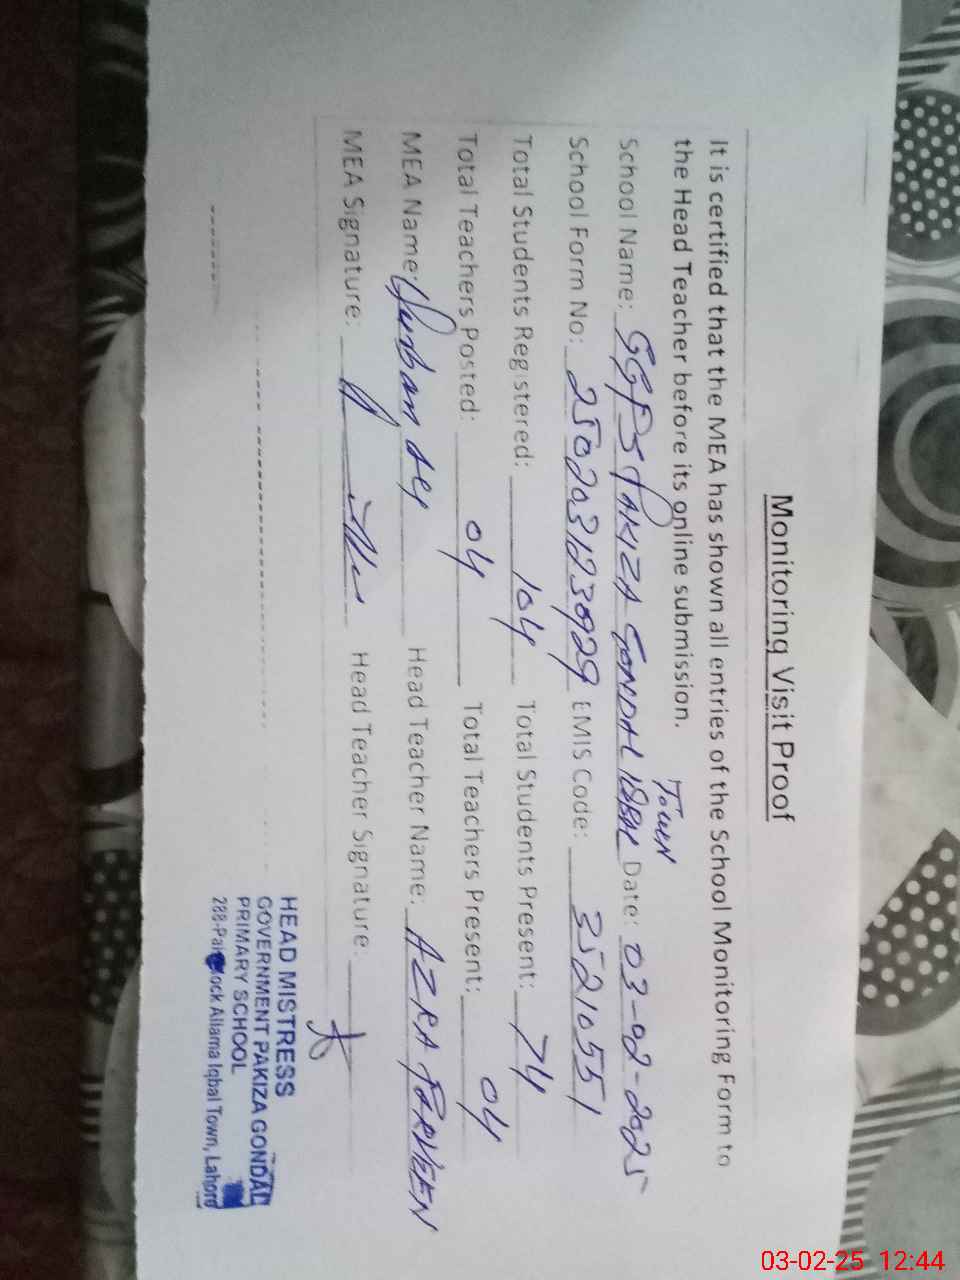 Monitoring Visit Proof
It is certified that the MEA has shown all entries of the School Monitoring Form to
the Head Teacher before its online submission.
Town
School Name: GGPS PAKIZA GONDAL IQBAL Date: 03-02-2025
School Form No: EMIS Code: 35210551
Total Students Registered: 104 Total Students Present: 74
Total Teachers Posted: 04 Total Teachers Present: 04
MEA Name: Head Teacher Name: AZRA PARVEEN
MEA Signature: Head Teacher Signature:
HEAD MISTRESS
GOVERNMENT PAKIZA GONDAL
PRIMARY SCHOOL
288-Pak Block Allama Iqbal Town, Lahore
03-02-25 12:44